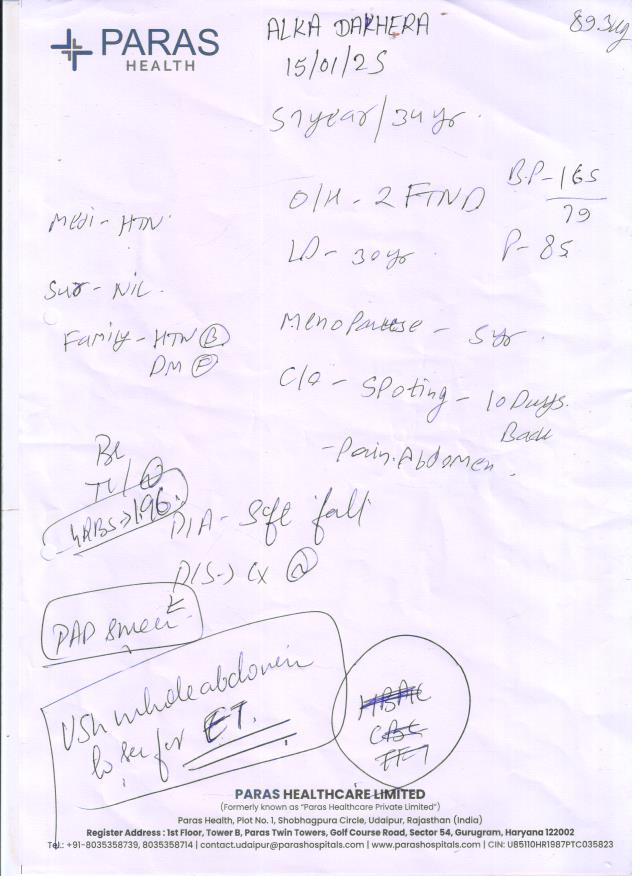 PARAS
HEALTH
ALKA DAKHERA
15/01/25
89.3kg
57year/34yr.
O/H - 2 FTND
B.P-165
79
Medi - HTN
LD - 30yr
P-85
Sur - NIL.
Menopause - 5yr.
Family - HTN (B)
DM (F)
C/O - Spoting - 10 Days.
Back
- Pain.Abdomen.
Br
(N)
RBS->196.
P/A - Soft
P/S-> CX (N)
PAP smear
USG whole abdomen
to see for ET.
HBA1C
CBC
PARAS HEALTHCARE LIMITED
(Formerly known as “Paras Healthcare Private Limited”)
Paras Health, Plot No. 1, Shobhagpura Circle, Udaipur, Rajasthan (India)
Register Address : 1st Floor, Tower B, Paras Twin Towers, Golf Course Road, Sector 54, Gurugram, Haryana 122002
Tel.: +91-8035358739, 8035358714 | contact.udaipur@parashospitals.com | www.parashospitals.com | CIN: U85110HR1987PTC035823